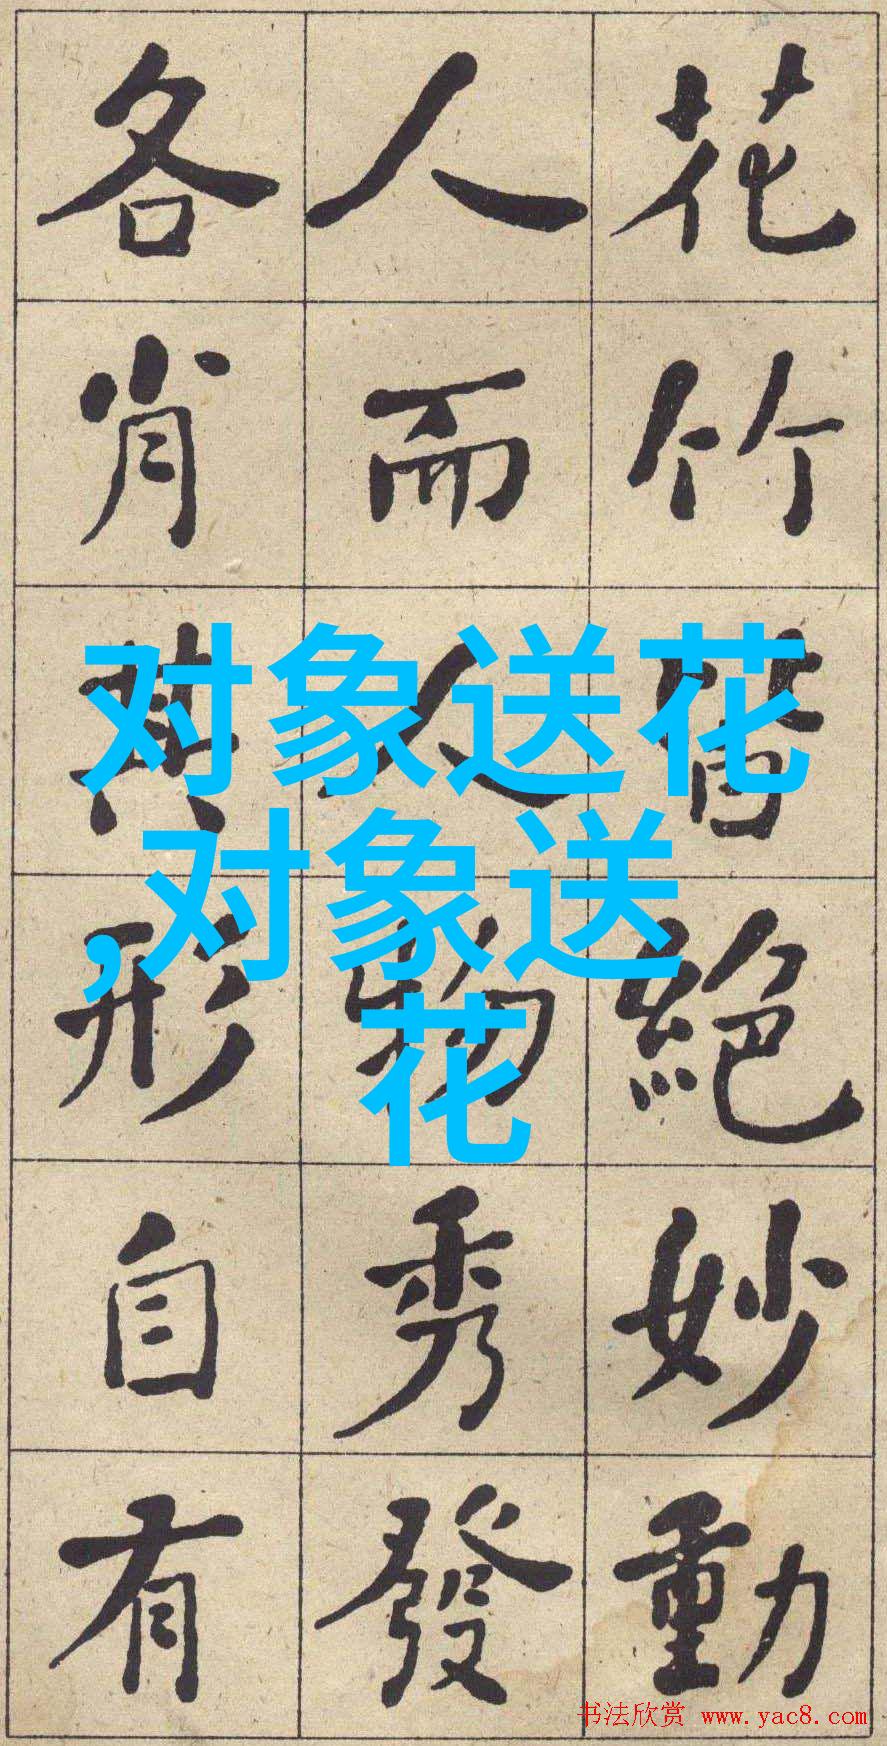 花竹皆絕妙動
人而人物秀發
各肖其形自有
对象送花
,对象送
花
书法欣赏 www.yac8.com